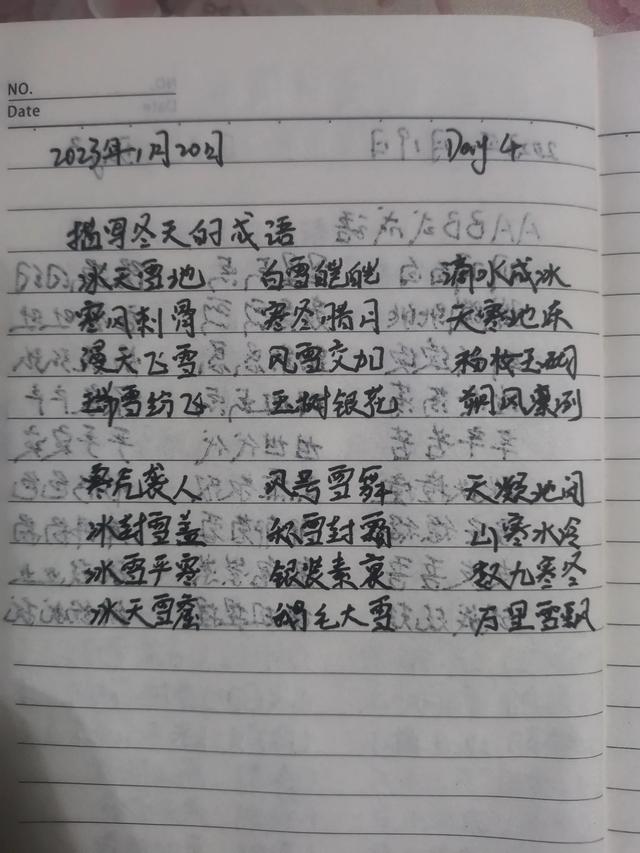 NO.
Date
2023年1月20日 Day 4
描写冬天的成语
冰天雪地 白雪皑皑 滴水成冰
寒风刺骨 寒冬腊月 天寒地冻
漫天飞雪 风雪交加
瑞雪纷飞 玉树银花 朔风凛冽
寒气袭人 风号雪舞 天凝地闭
冰封雪盖 积雪封霜 山寒水冷
冰雪严寒 银装素裹 数九寒冬
冰天雪窖 鹅毛大雪 万里雪飘